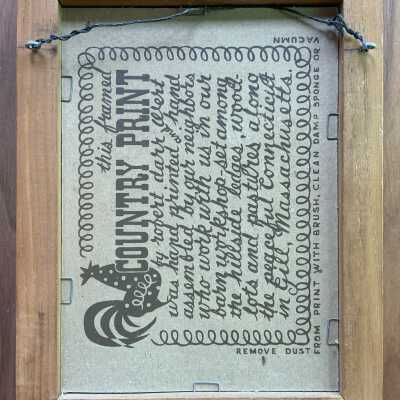 this framed
COUNTRY PRINT
by robert darr wert
was hand printed and hand
assembled by our neighbors
who work with us in our
barn workshop-set among
the hillside ledges, wood-
lots and pastures along
the peaceful Connecticut
in Gill, Massachusetts.
REMOVE DUST
FROM PRINT WITH BRUSH, CLEAN DAMP SPONGE OR
VACUMN